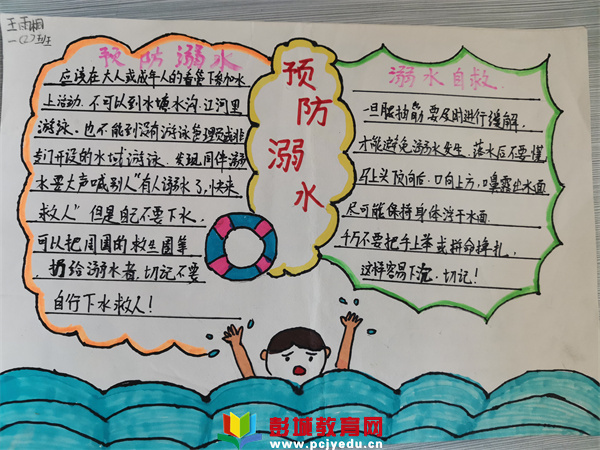 王雨桐
一(2)班
预防溺水
应该在大人或成年人的看管下参加水
上活动.不可以到水塘水沟.江河里
游泳.也不能到没有游泳管理员或非
专门开设的水域游泳.发现同伴溺
水要大声喊别人"有人溺水了,快来
救人"但是自己不要下水.
可以把周围的救生圈等
扔给溺水者.切记不要
自行下水救人!
预防溺水
溺水自救
一旦腿抽筋要及时进行缓解.
才能避免溺水发生.落水后不要慌
马上头顶向后.口向上方,嘴露出水面
尽可能保持身体浮于水面.
千万不要把手上举或拼命挣扎,
这样容易下沉.切记!
彭城教育网
www.pcjyedu.cn